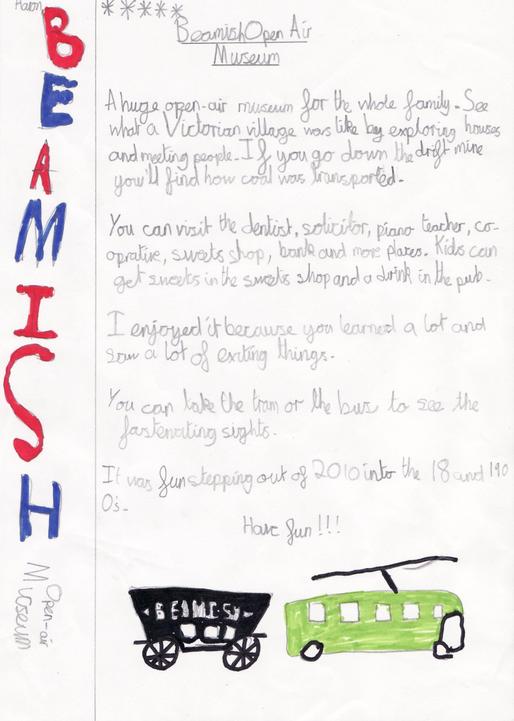 Aaron
*****
Beamish Open Air
Museum
BEAMISH
Open-air
Museum
A huge open-air museum for the whole family. See
what a Victorian village was like by exploring houses
and meeting people. If you go down the drift mine
you'll find how coal was transported.
You can visit the dentist, solicitor, piano teacher, co-
oprative, sweets shop, bank and more places. Kids can
get sweets in the sweets shop and a drink in the pub.
I enjoyed it because you learned a lot and
saw a lot of exiting things.
You can take the tram or the bus to see the
fastenating sights.
It was fun stepping out of 2010 into the 18 and 190
0s.
Have fun!!!
BEAMISH